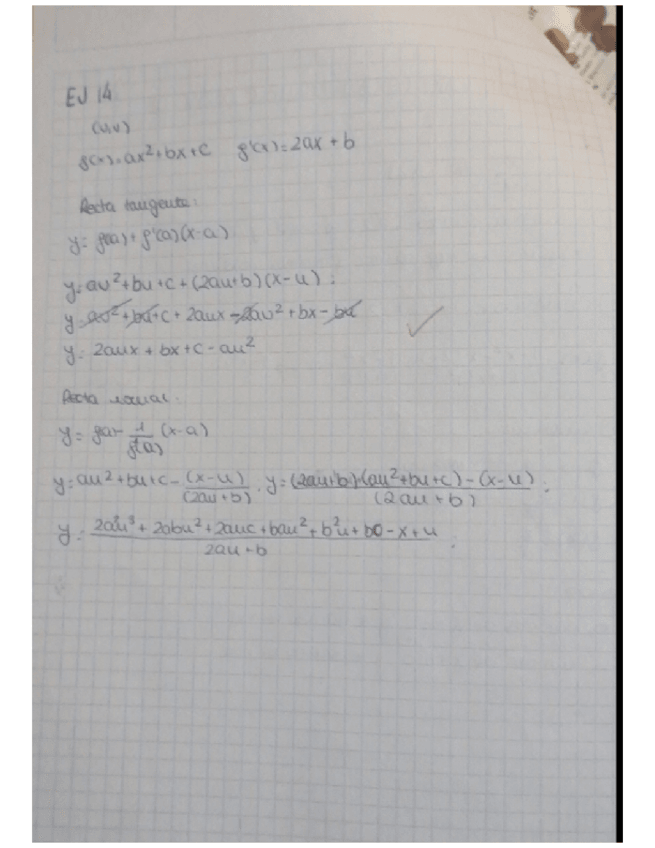 EJ 14
(u,v)
f(x)=ax²+bx+c f'(x)=2ax+b
Recta tangente:
y=f(a)+f'(a)(x-a)
y=au²+bu+c+(2au+b)(x-u):
y=au²+bu+c+2aux-2au²+bx-bu
y=2aux+bx+c-au²
Recta normal:
y=fa-1/f'(a)(x-a)
y=au²+bu+c-(x-u)/(2au+b). y=(2au+b)·(au²+bu+c)-(x-u)/(2au+b):
y=2a²u³+2abu²+2auc+bau²+b²u+bc-x+u/2au+b: